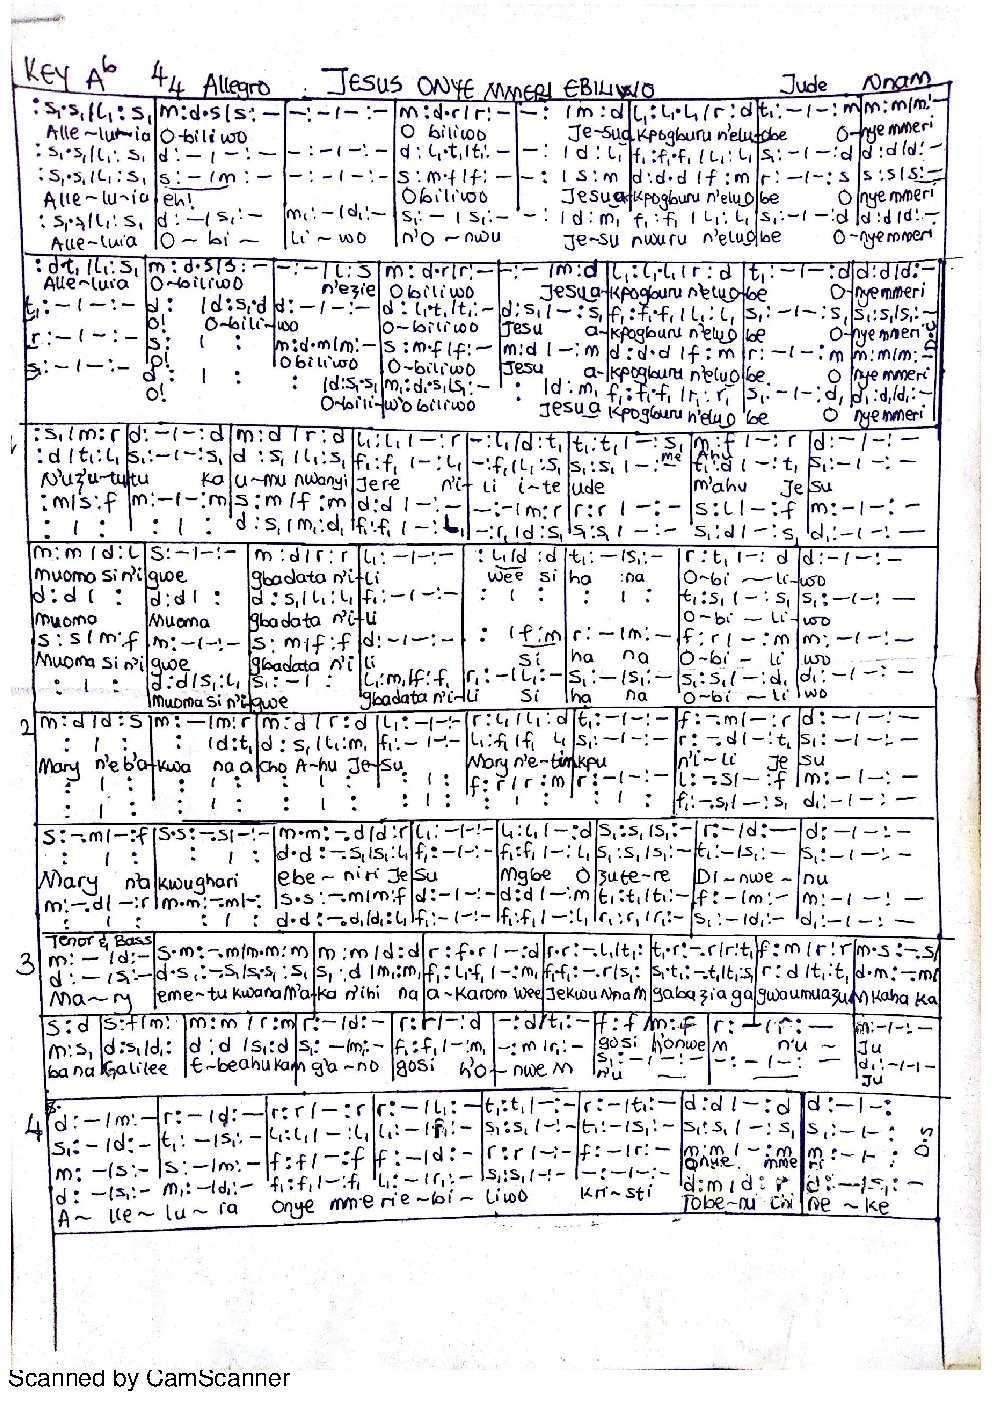 KEY Ab 4/4 Allegro JESUS ONYE MMERI EBILIWO Jude Nnam
:s₁.s₁/l₁:s₁ m:d.s/s:- -:-/-:- m:d.r/r:- -:/m:d l₁:l₁.l₁/r:d t₁:-/-:m m:m/m:-
Alle~lu~ia O-biliwo O biliwo Je-sua kpogburu n'eluobe O-nye mmeri
:s₁.s₁/l₁:s₁ d:-/-:- -:-/-:- d:l₁.t₁/t₁:- -:/d:l₁ f₁:f₁.f₁/l₁:l₁ s₁:-/-:d d:d/d:-
:s₁.s₁/l₁:s₁ s:-/m:- -:-/-:- s:m.f/f:- -:/s:m d:d.d/f:m r:-/-:s s:s/s:-
Alle~lu~ia eh! Obiliwo Jesua kpogburu n'eluo be O nyemmeri
:s₁.s₁/l₁:s₁ d:-/s₁:- m₁:-/d₁:- s₁:-/s₁:- :/d:m₁ f₁:f₁/l₁:l₁ s₁:-/-:d d:d/d:-
Alle~luia O~bi~ li~wo n'O~nwu Je-su nwuru n'eluo be O-nyemmeri
:d.t₁/l₁:s₁ m:d.s/s:- -:-/l:s m:d.r/r:- -:-/m:d l₁:l₁.l₁/r:d t₁:-/-:d d:d/d:-
Alle~luia O-biliwo n'ezie Obiliwo Jesu a-kpogburu n'eluo-be O-nyemmeri
t₁:-/-:- d:/d:s₁.d d:-/-:- d:l₁.t₁/t₁:- d:s₁/-:s₁ f₁:f₁.f₁/l₁:l₁ s₁:-/-:s₁ s₁:s₁/s₁:-
O! O-bili-wo O~biliwo Jesu a-kpogburu n'eluo be O-nyemmeri D.C
r:-/-:- s:/: m:d.m/m:- s:m.f/f:- m:d/-:m d:d.d/f:m r:-/-:m m:m/m:-
O! Obiliwo O-biliwo Jesu a-kpogburu n'eluo be O nyemmeri
s₁:-/-:- d:/: :/d:s₁.s₁ m₁:d.s₁/s₁:- :/d:m₁ f₁:f₁.f₁/r₁:r₁ s₁:-/-:d₁ d₁:d₁/d₁:-
O! O-bili-wo biliwo Jesu a kpogburu n'eluo be O nyemmeri
1 :s₁/m:r d:-/-:d m:d/r:d l₁:l₁/-:r -:l₁/d:t₁ t₁:t₁/-:s₁ m:f/-:r d:-/-:-
me Ahu
:d/t₁:l₁ s₁:-/-:s₁ d:s₁/l₁:s₁ f₁:f₁/-:l₁ -:f₁/l₁:s₁ s₁:s₁/-:- t₁:d/-:t₁ s₁:-/-:-
N'uzu-tutu ka u-mu nwanyi Jere n'i-li i-te ude m'ahu Je su
:m/s:f m:-/-:m s:m/f:m d:d/-:- -:-/m:r r:r/-:- s:l/-:f m:-/-:-
:/: :/: d:s₁/m₁:d₁ f₁:f₁/-:l₁ -:r₁/d:s₁ s₁:s₁/-:- s₁:d/-:s₁ d₁:-/-:-
m:m/d:l s:-/-:- m:d/r:r l₁:-/-:- :l₁/d:d t₁:-/s₁:- r:t₁/-:d d:-/-:-
muoma si n'i gwe gbadata n'i-li wee si ha na O-bi~li-wo
d:d/: d:d/: d:s₁/l₁:l₁ f₁:-/-:- :/: :/: t₁:s₁/-:s₁ s₁:-/-:-
muoma Muoma gbadata n'i-li O-bi~li-wo
s:s/m:f m:-/-:- s:m/f:f d:-/-:- :/f:m r:-/m:- f:r/-:m m:-/-:-
Muoma si n'i gwe gbadata n'i li si ha na O-bi~li wo
:/: d:d/s₁:l₁ s₁:-/: l₁:m₁/f:f₁ r₁:-/l₁:- s₁:-/s₁:- s₁:s₁/-:d₁ d₁:-/-:-
muoma si n'i gwe gbadata n'i-li si ha na O-bi~li wo
2 m:d/d:s m:-/m:r m:d/r:d l₁:-/-:- r:l₁/l₁:d t₁:-/-:- f:-.m/-:r d:-/-:-
:/: :/d:t₁ d:s₁/l₁:m₁ f₁:-/-:- l₁:f₁/f₁:l₁ s₁:-/-:- r:-.d/-:t₁ s₁:-/-:-
Mary n'eb'a-kwa na a cho A-hu Je-su Mary n'e-tinkpu n'i-li Je su
:/: :/: :/: :/: f:r/r:m r:-/-:- l:-.s/-:f m:-/-:-
:/: :/: :/: :/: :/: :/: f₁:-.s₁/-:s₁ d₁:-/-:-
s:-.m/-:f s.s:-.s/-:- m.m:-.d/d:r l₁:-/-:- l₁:l₁/-:d s₁:s₁/s₁:- r:-/d:- d:-/-:-
:/: :/: d.d:-.s₁/s₁:l₁ f₁:-/-:- f₁:f₁/-:l₁ s₁:s₁/s₁:- t₁:-/s₁:- s₁:-/-:-
Mary n'a kwughari ebe~niri Je su Mgbe O zute-re Di~nwe~nu
m:-.d/-:r m.m:-.m/-:- s.s:-.m/m:f d:-/-:- d:d/-:m t₁:t₁/t₁:- f:-/m:- m:-/-:-
:/: :/: d.d:-.d₁/d₁:l₁ f₁:-/-:- f₁:f₁/-:l₁ r₁:r₁/r₁:- s₁:-/d₁:- d₁:-/-:-
Tenor & Bass
3 m:-/d:- s.m:-.m/m.m:m m:m/d:d r:f.r/-:d r.r:-.l₁/t₁: t₁.r:-.r/r:t₁ f:m/r:r m.s:-.s/
d:-/s₁:- d.s₁:-.s₁/s₁.s₁:s₁ s₁:d/m₁:m₁ f₁:l₁.f₁/-:m₁ f₁.f₁:-.r/s₁: s₁.t₁:-.t₁/t₁:s₁ r:d/t₁:t₁ d.m:-.m/
Ma~ry eme~tu kwana M'a-ka n'ihi na a~karom wee Jekwu Nnam gabaziaga gwa umuazu M kaha ka
s:d s:f/m: m:m/r:m r:-/d:- r:r/-:d -:d/t₁:- f:f/m:f r:-/r:- m:-/-:-
gosi honwe M n'u~ Ju
m:s₁ d:s₁/d₁: d:d/s₁:d s₁:-/m₁:- f₁:f₁/-:m₁ -:m/r₁:- s₁:-/-:- -:-/-:- d₁:-/-:-
ba na Galilee t~beahukam g'a~no gosi h'o~nwe M n'u Ju
4 d:-/m:- r:-/d:- r:r/-:r r:-/l₁:- t₁:t₁/-:- r:-/t₁:- d:d/-:d d:-/-:
s₁:-/d:- t₁:-/s₁:- l₁:l₁/-:l₁ l₁:-/f₁:- s₁:s₁/-:- t₁:-/s₁:- s₁:s₁/-:s₁ s₁:-/-: D.S
m:-/s:- s:-/m:- f:f/-:f f:-/d:- r:r/-:- f:-/r:- m:m/-:m m:-/-:
Onye mme ri
d:-/s₁:- m₁:-/d₁:- f₁:f₁/-:f₁ l₁:-/r₁:- s₁:s₁/-:- -:-/-:- d:m/d:r d:-/s₁:-
A~lle~lu~ia onye mmeri e~bi~liwo kri~sti Tobe~nu Chi ne~ke
Scanned by CamScanner